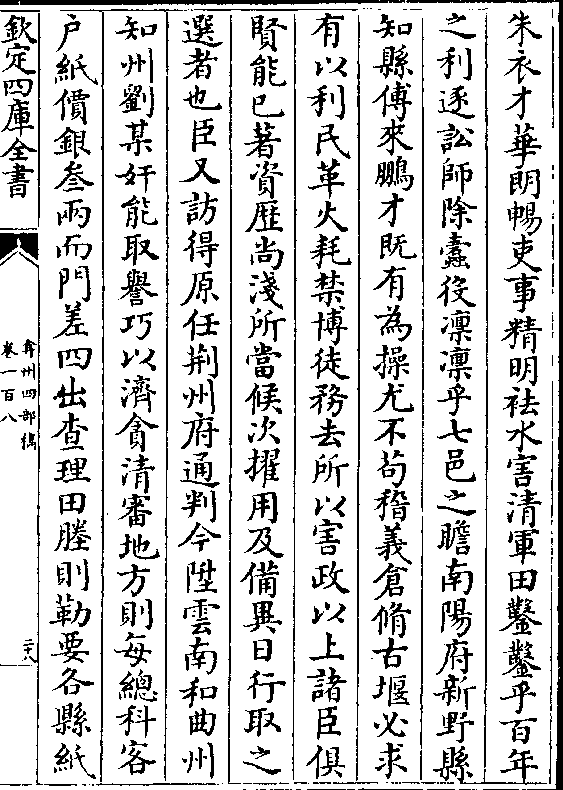 朱衣才華朗暢吏事精明祛水害清軍田鑿鑿乎百年
之利逐訟師除蠹役凜凜乎七邑之瞻南陽府新野縣
知縣傅來鵬才既有為操尤不苟稽義倉脩古堰必求
有以利民革火耗禁博徒務去所以害政以上諸臣俱
賢能已著資歷尚淺所當候次擢用及備異日行取之
選者也臣又訪得原任荆州府通判今陞雲南和曲州
知州劉某奸能取譽巧以濟貪清審地方則每總科客
戶紙價銀叁兩而門差四出查理田塍則勒要各縣紙
欽定四庫全書
弇州四部稿
卷一百八
二十八